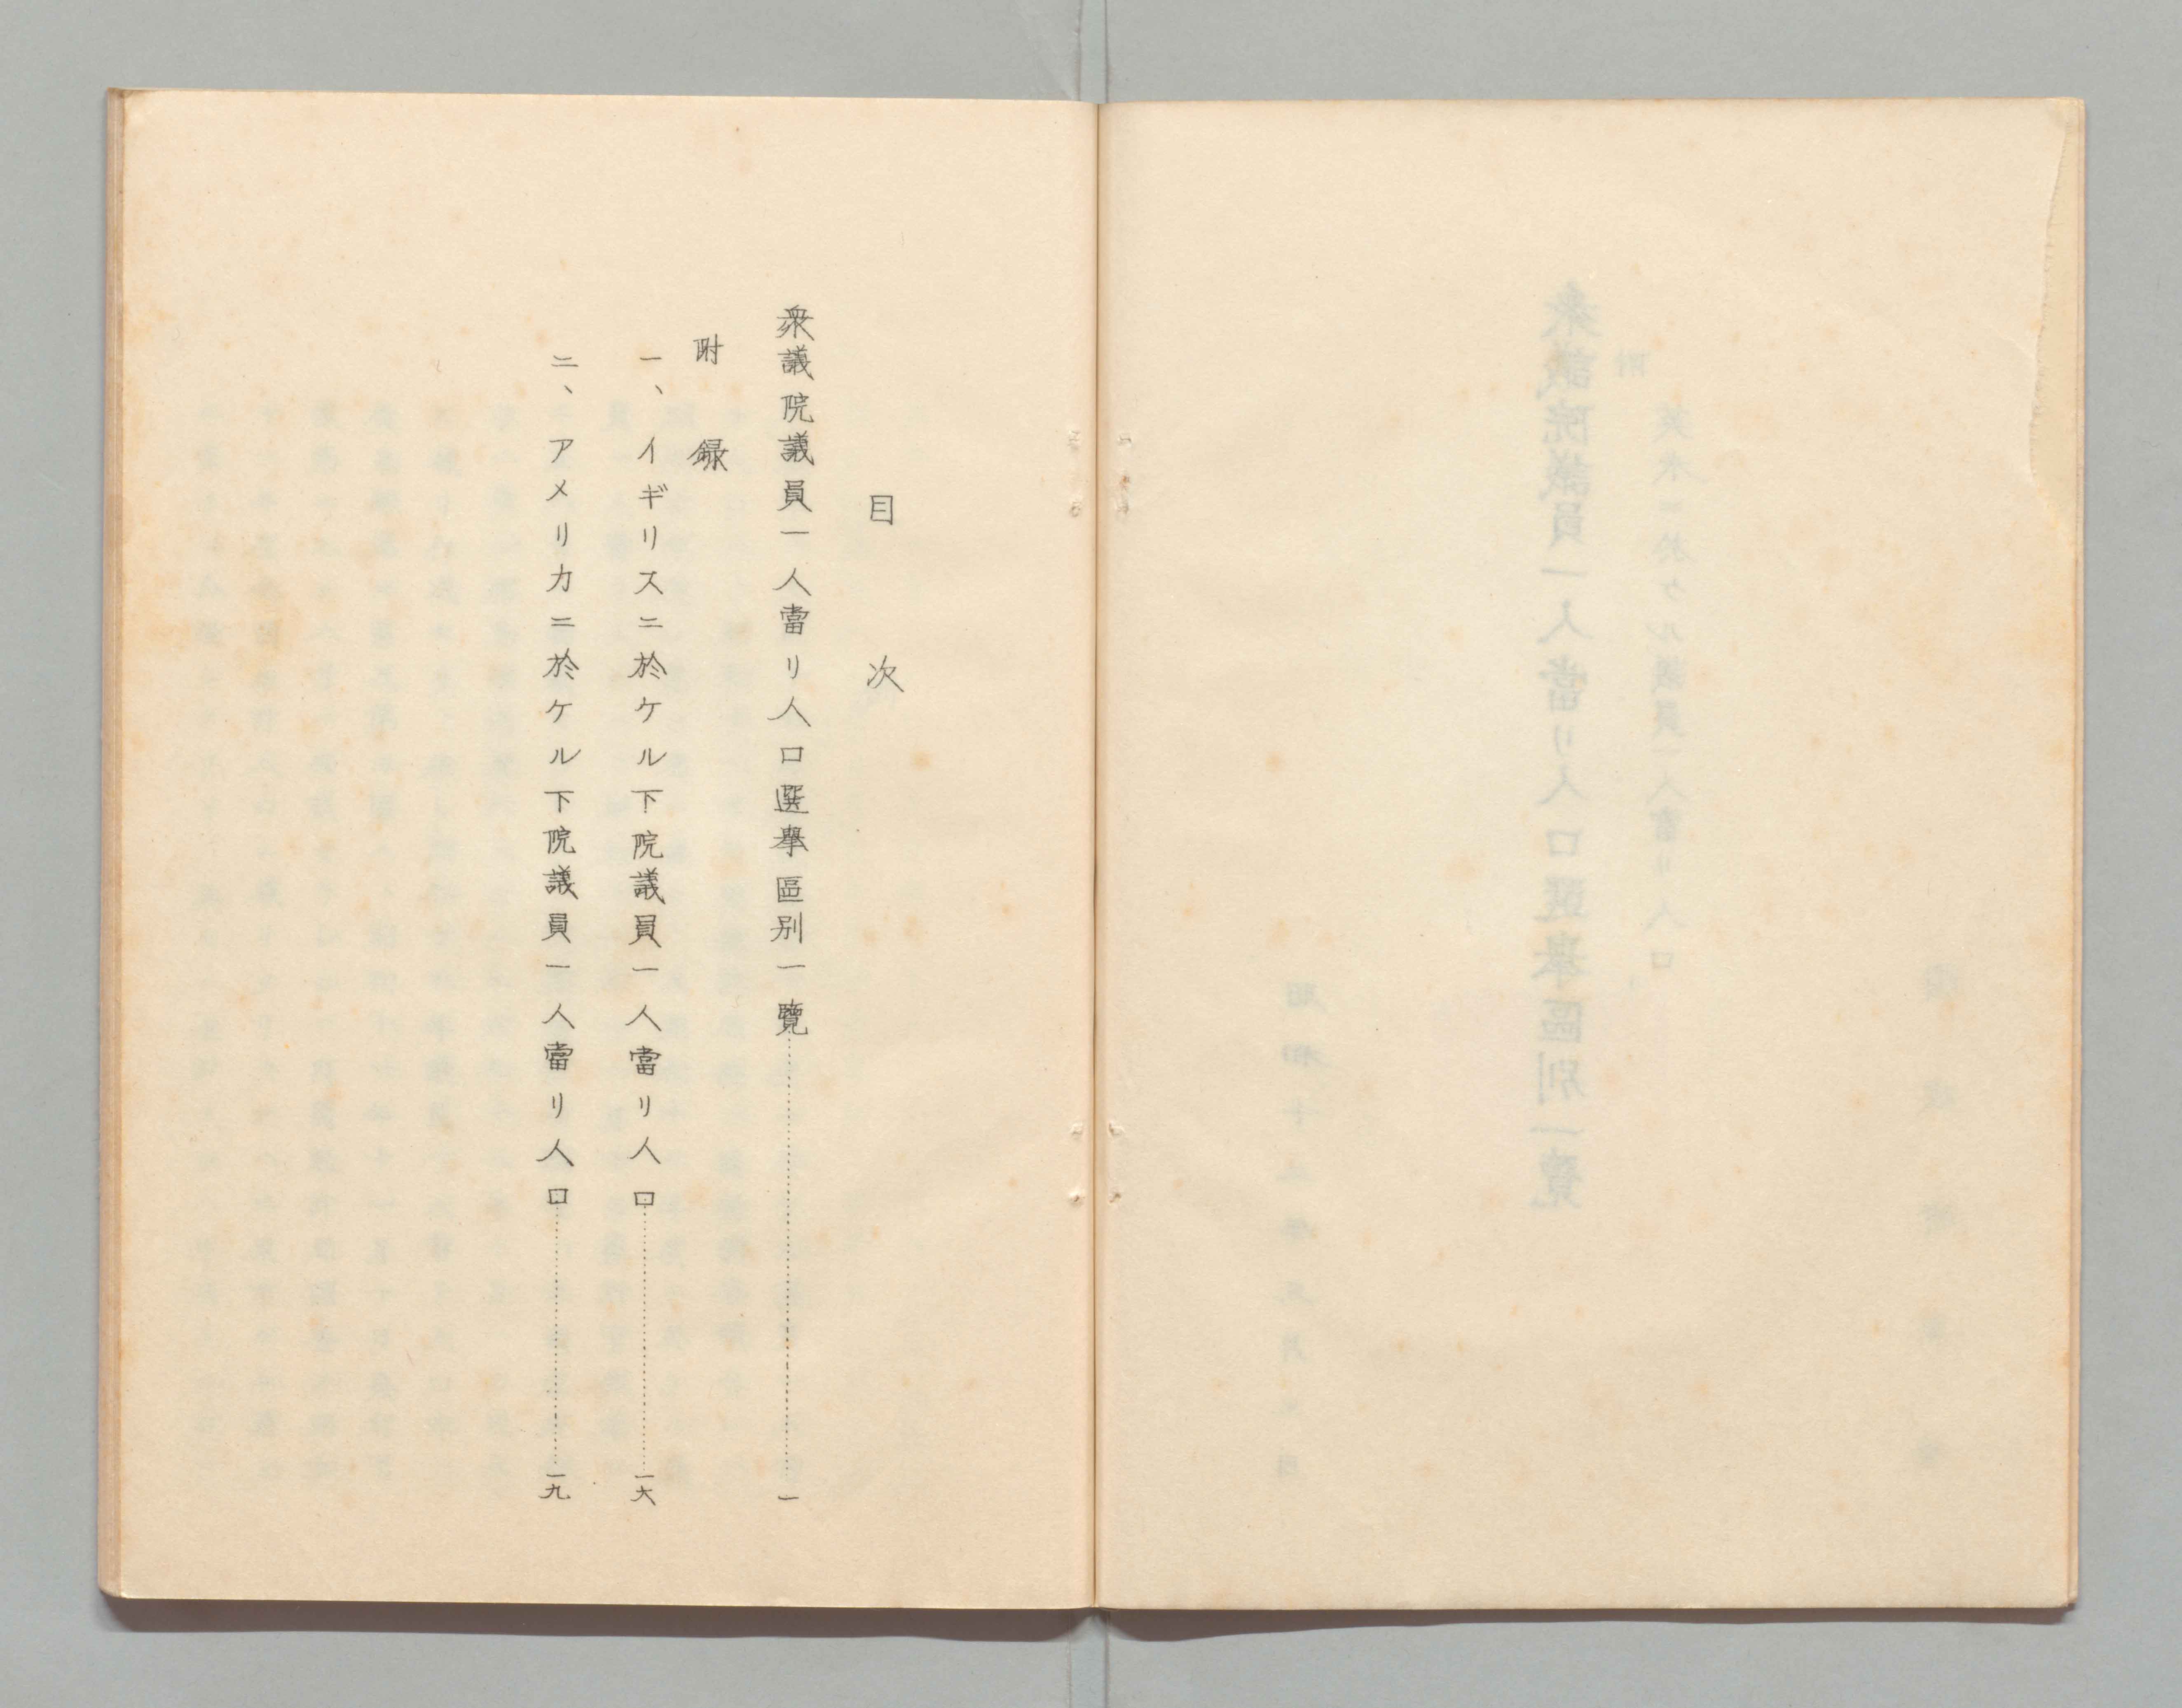 目次
衆議院議員一人當リ人口選擧區别一覽……………一
附録
一、イギリスニ於ケル下院議員一人當リ人口……………一六
二、アメリカニ於ケル下院議員一人當リ人口……………一九